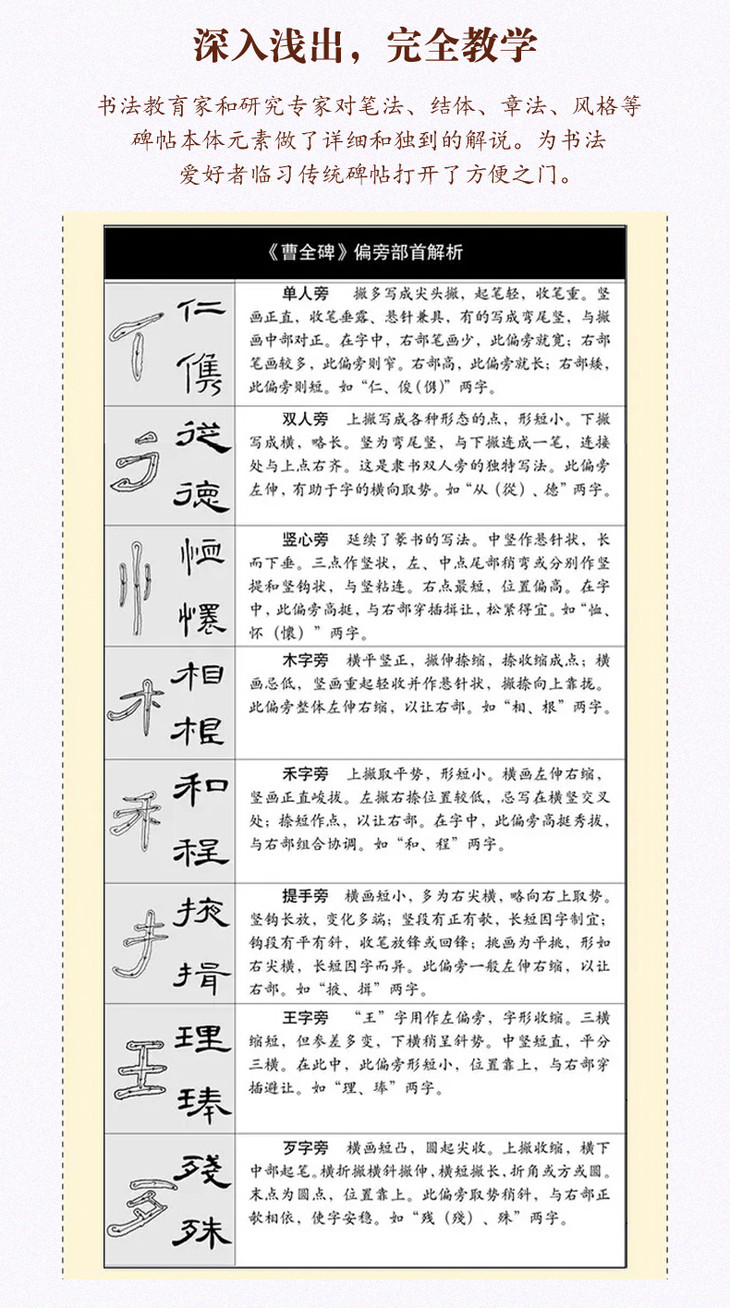 深入浅出，完全教学
书法教育家和研究专家对笔法、结体、章法、风格等
碑帖本体元素做了详细和独到的解说。为书法
爱好者临习传统碑帖打开了方便之门。
《曹全碑》偏旁部首解析
仁
儁
单人旁　撇多写成尖头撇，起笔轻，收笔重。竖
画正直，收笔垂露、悬针兼具，有的写成弯尾竖，与撇
画中部对正。在字中，右部笔画少，此偏旁就宽；右部
笔画较多，此偏旁则窄。右部高，此偏旁就长；右部矮，
此偏旁则短。如“仁、俊（儁）”两字。
從
德
双人旁　上撇写成各种形态的点，形短小。下撇
写成横，略长。竖为弯尾竖，与下撇连成一笔，连接
处与上点右齐。这是隶书双人旁的独特写法。此偏旁
左伸，有助于字的横向取势。如“从（從）、德”两字。
恤
懷
竖心旁　延续了篆书的写法。中竖作悬针状，长
而下垂。三点作竖状，左、中点尾部稍弯或分别作竖
提和竖钩状，与竖粘连。右点最短，位置偏高。在字
中，此偏旁高挺，与右部穿插揖让，松紧得宜。如“恤、
怀（懷）”两字。
相
根
木字旁　横平竖正，撇伸捺缩，捺收缩成点；横
画忌低，竖画重起轻收并作悬针状，撇捺向上靠拢。
此偏旁整体左伸右缩，以让右部。如“相、根”两字。
和
程
禾字旁　上撇取平势，形短小。横画左伸右缩，
竖画正直峻拔。左撇右捺位置较低，忌写在横竖交叉
处；捺短作点，以让右部。在字中，此偏旁高挺秀拔，
与右部组合协调。如“和、程”两字。
掖
揖
提手旁　横画短小，多为右尖横，略向右上取势。
竖钩长放，变化多端；竖段有正有欹，长短因字制宜；
钩段有平有斜，收笔放锋或回锋；挑画为平挑，形如
右尖横，长短因字而异。此偏旁一般左伸右缩，以让
右部。如“掖、揖”两字。
理
王字旁　“王”字用作左偏旁，字形收缩。三横
缩短，但参差多变，下横稍呈斜势。中竖短直，平分
三横。在此中，此偏旁形短小，位置靠上，与右部穿
插避让。如“理、瑃”两字。
殘
殊
歹字旁　横画短凸，圆起尖收。上撇收缩，横下
中部起笔。横折撇横斜撇伸，横短撇长，折角或方或圆。
末点为圆点，位置靠上。此偏旁取势稍斜，与右部正
欹相依，使字安稳。如“残（殘）、殊”两字。